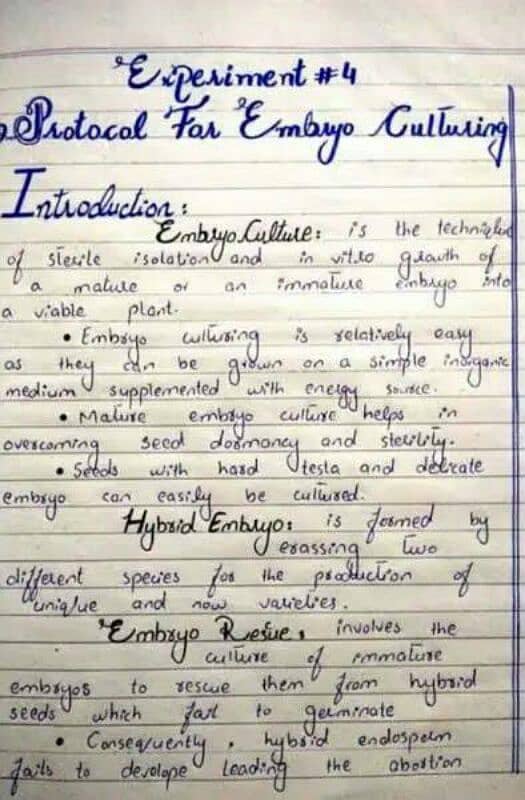 Experiment #4
Protocol For Embryo Culturing
Introduction:
Embryo Culture: is the technique
of sterile isolation and in vitro growth of
a mature or an immature embryo into
a viable plant.
• Embryo culturing is relatively easy
as they can be grown on a simple inorganic
medium supplemented with energy source.
• Mature embryo culture helps in
overcoming seed dormancy and sterility.
• Seeds with hard testa and delicate
embryo can easily be cultured.
Hybrid Embryo: is formed by
crassing two
different species for the production of
uniq/ue and now varieties.
Embryo Resue, involves the
culture of immature
embryos to rescue them from hybrid
seeds which fail to germinate
• Conseq/uently, hybrid endosperm
fails to develope leading the abortion